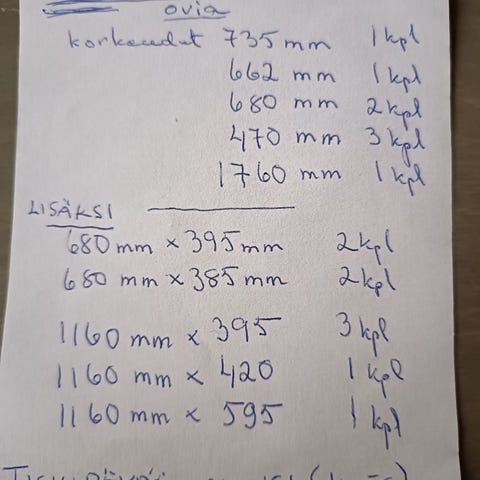 ovia
korkeudet 735 mm 1 kpl
662 mm 1 kpl
680 mm 2 kpl
470 mm 3 kpl
1760 mm 1 kpl
LISÄKSI
680 mm x 395 mm 2 kpl
680 mm x 385 mm 2 kpl
1160 mm x 395 3 kpl
1160 mm x 420 1 kpl
1160 mm x 595 1 kpl